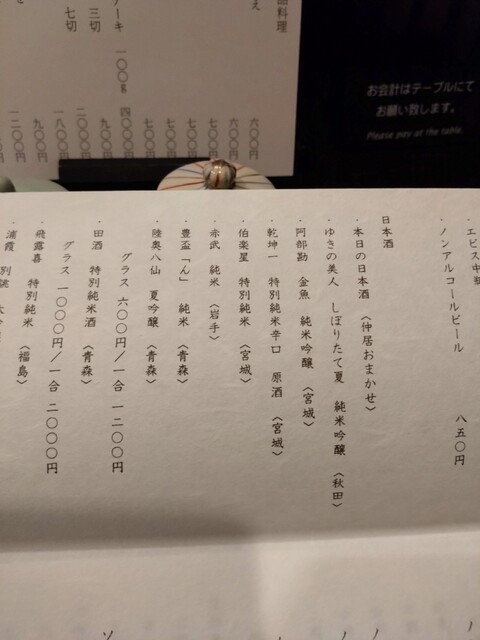 品料理
六〇〇円
六〇〇円
七〇〇円
七〇〇円
七〇〇円
七〇〇円
ーキ 一〇〇g 四〇〇〇円
三切 九〇〇円
七切 二〇〇〇円
一八〇〇円
九〇〇円
一二〇〇円
お会計はテーブルにて
お願い致します。
Please pay at the table.
・エビス中瓶
・ノンアルコールビール 八五〇円
日本酒
・本日の日本酒 〈仲居おまかせ〉
・ゆきの美人 しぼりたて夏 純米吟醸 〈秋田〉
・阿部勘 金魚 純米吟醸 〈宮城〉
・乾坤一 特別純米辛口 原酒 〈宮城〉
・伯楽星 特別純米 〈宮城〉
・赤武 純米 〈岩手〉
・豊盃「ん」 純米 〈青森〉
・陸奥八仙 夏吟醸 〈青森〉
グラス 六〇〇円/一合 一二〇〇円
・田酒 特別純米酒 〈青森〉
グラス 一〇〇〇円/一合 二〇〇〇円
・飛露喜 特別純米 〈福島〉
・浦霞 別誂